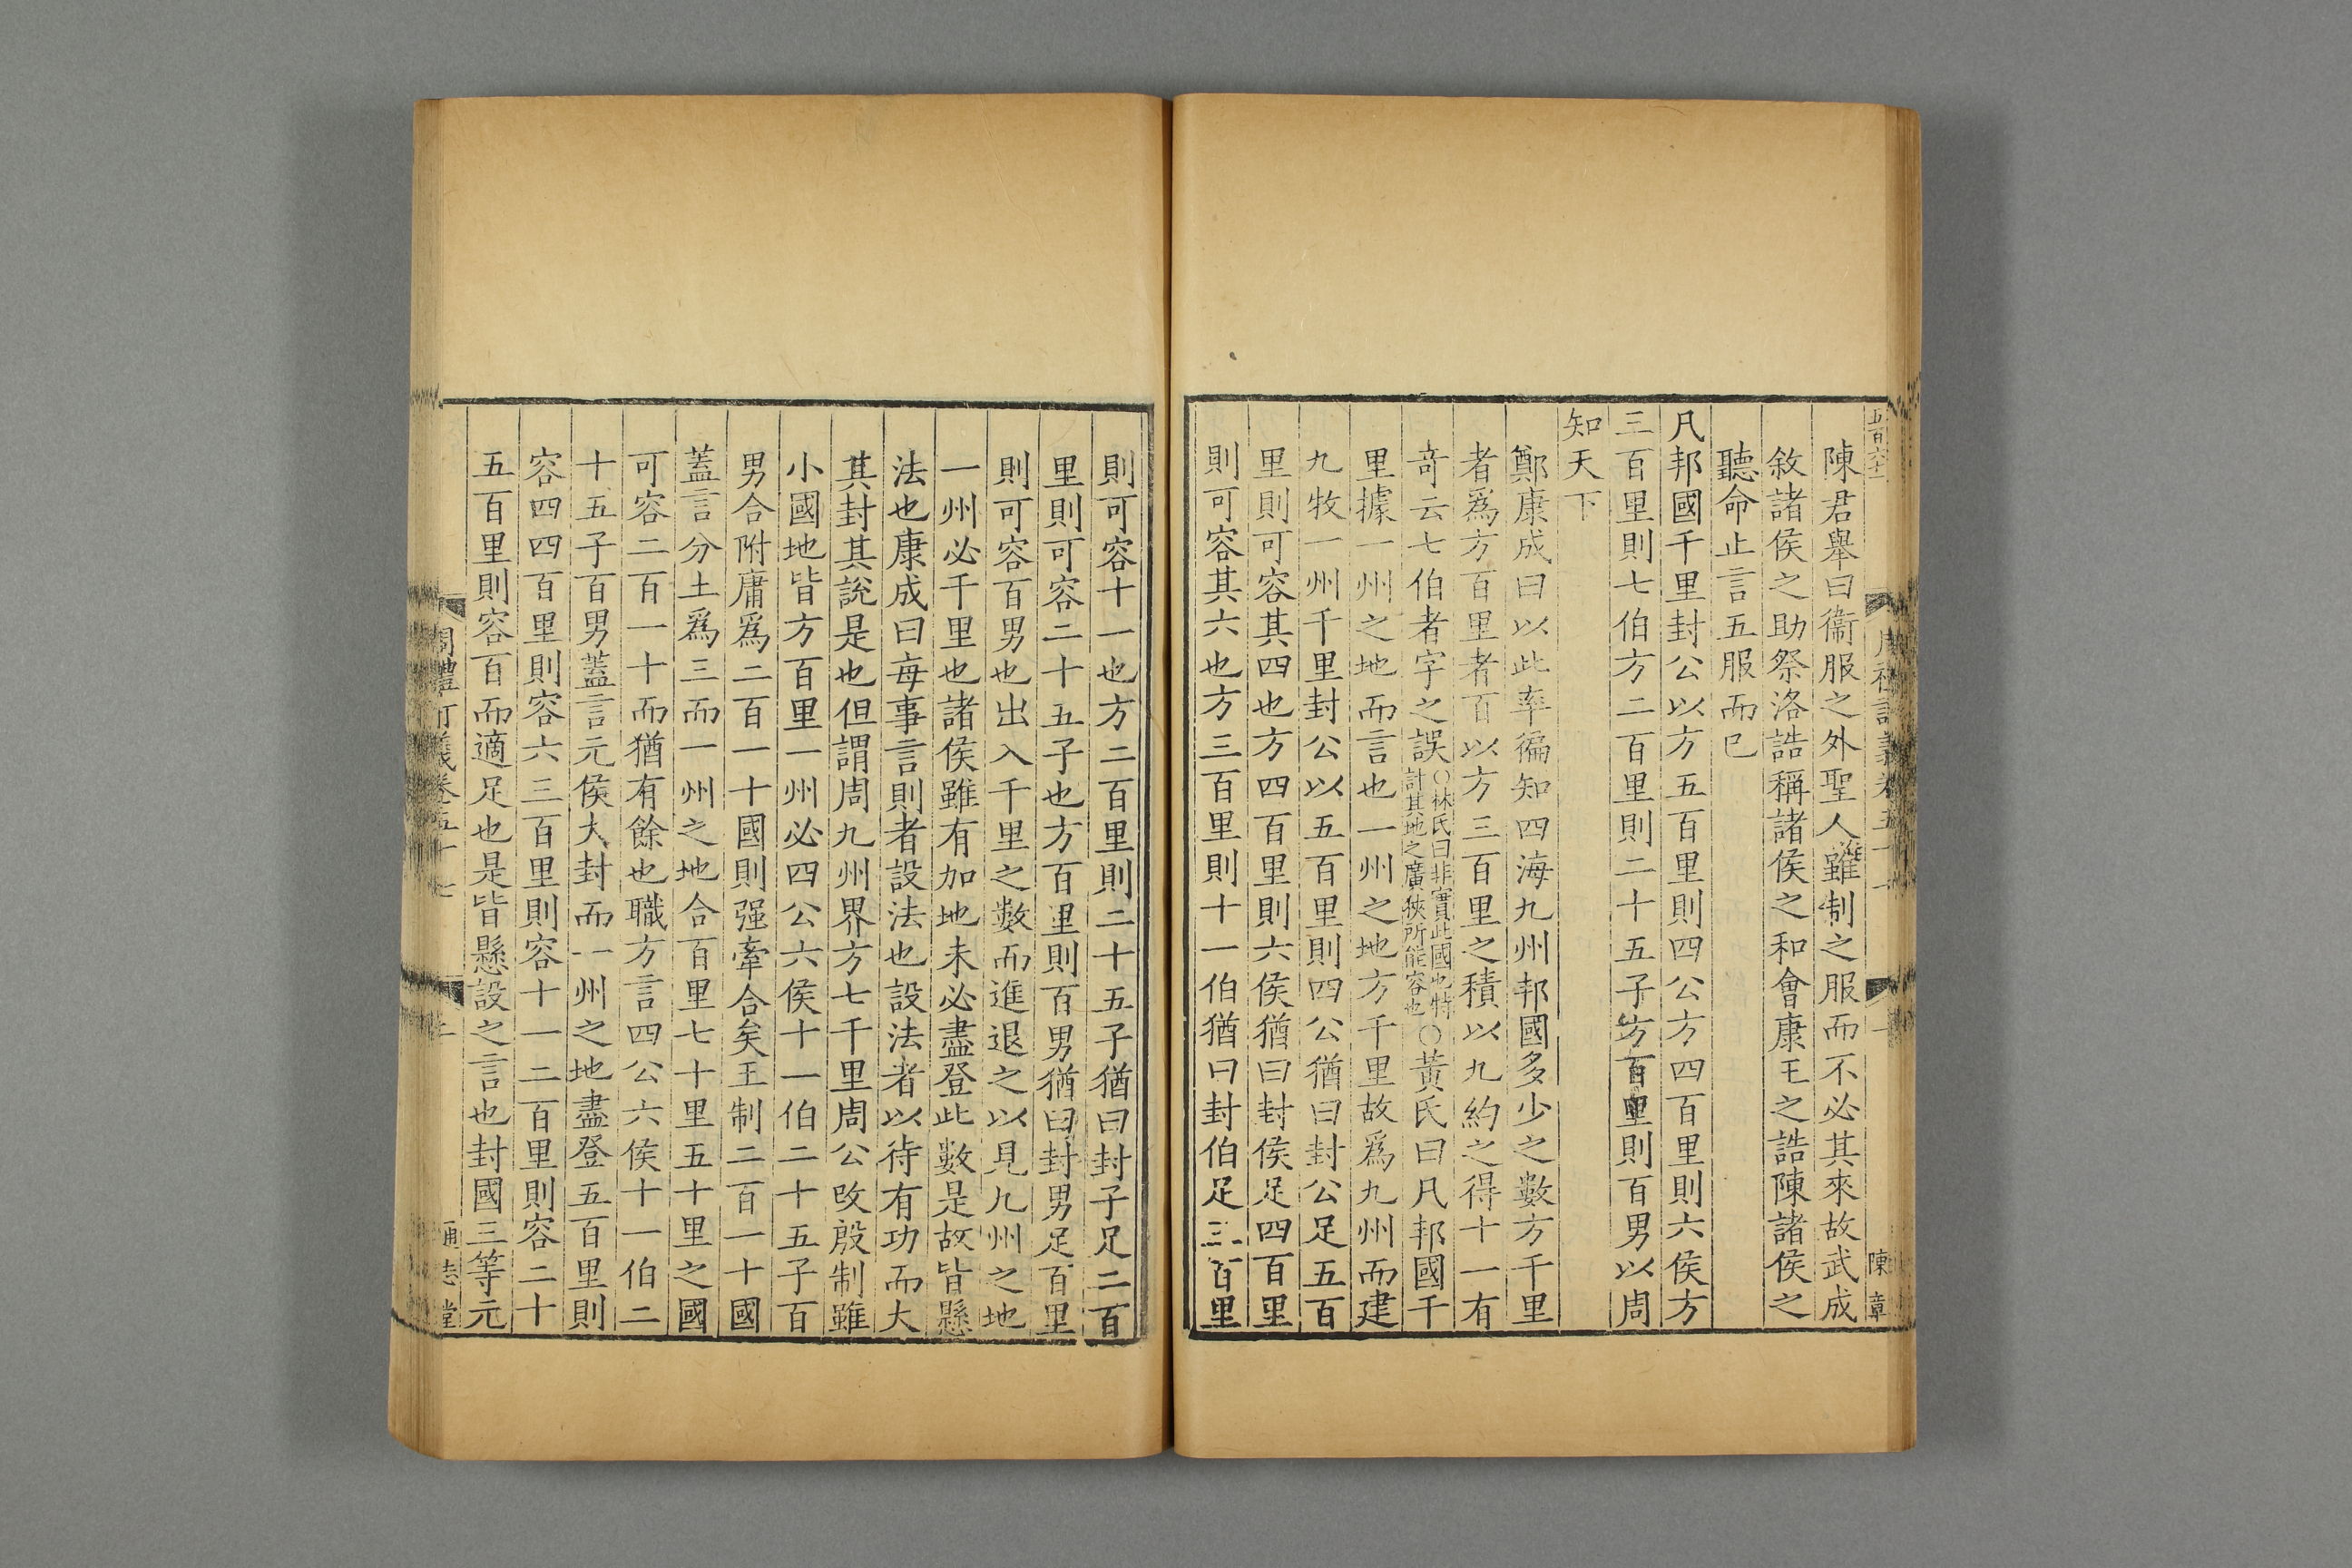 五百六十一
陳章
陳君舉曰衞服之外聖人雖制之服而不必其來故武成
敘諸侯之助祭洛誥稱諸侯之和會康王之誥陳諸侯之
聽命止言五服而已
凡邦國千里封公以方五百里則四公方四百里則六侯方
三百里則七伯方二百里則二十五子方百里則百男以周
知天下
鄭康成曰以此率徧知四海九州邦國多少之數方千里
者爲方百里者百以方三百里之積以九約之得十一有
竒云七伯者字之誤○林氏曰非實此國也特
計其地之廣狹所能容也○黃氏曰凡邦國千
里據一州之地而言也一州之地方千里故爲九州而建
九牧一州千里封公以五百里則四公猶曰封公足五百
里則可容其四也方四百里則六侯猶曰封侯足四百里
則可容其六也方三百里則十一伯猶曰封伯足三百里
則可容十一也方二百里則二十五子猶曰封子足二百
里則可容二十五子也方百里則百男猶曰封男足百里
則可容百男也出入千里之數而進退之以見九州之地
一州必千里也諸侯雖有加地未必盡登此數是故皆懸
法也康成曰每事言則者設法也設法者以待有功而大
其封其說是也但謂周九州界方七千里周公攺殷制雖
小國地皆方百里一州必四公六侯十一伯二十五子百
男合附庸爲二百一十國則强牽合矣王制二百一十國
蓋言分土爲三而一州之地合百里七十里五十里之國
可容二百一十而猶有餘也職方言四公六侯十一伯二
十五子百男蓋言元侯大封而一州之地盡登五百里則
容四四百里則容六三百里則容十一二百里則容二十
五百里則容百而適足也是皆懸設之言也封國三等元
周禮訂義卷五十七
通志堂